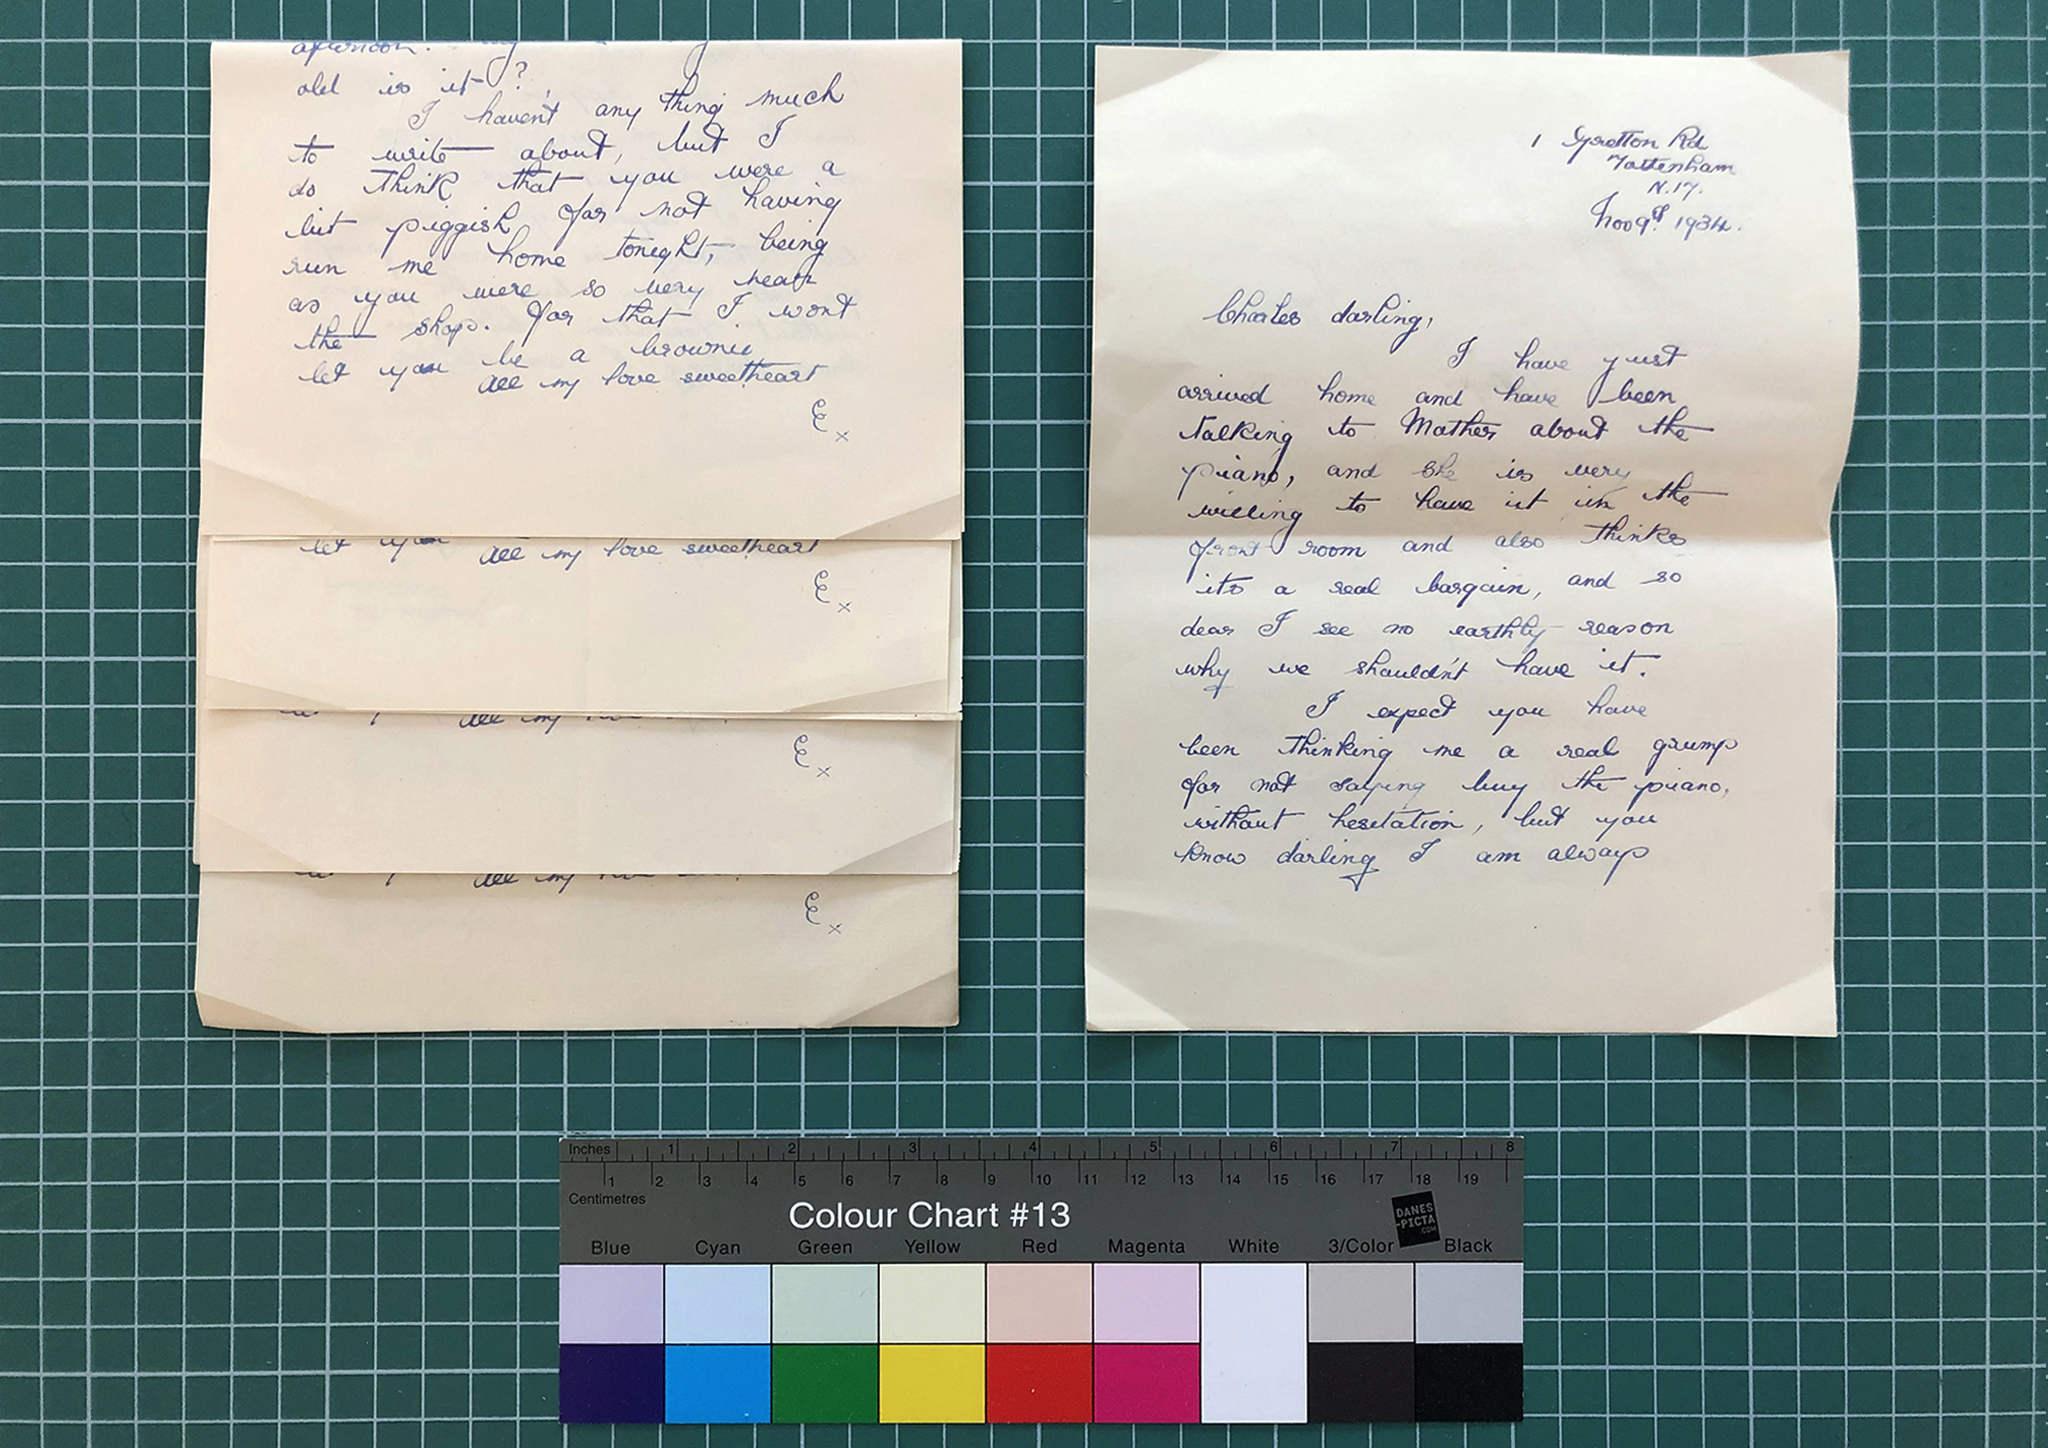 afternoon.
old is it?
I haven't any thing much
to write about, but I
do think that you were a
bit piggish for not having
run me home tonight, being
as you were so very near
the shop. For that I wont
let you be a brownie
All my love sweetheart
E x
let you All my love sweetheart
E x
All my love
E x
All my love
E x
1 Gretton Rd
Tottenham
N.17.
Nov 9th 1934.
Charles darling,
I have just
arrived home and have been
talking to Mother about the
piano, and she is very
willing to have it in the
front room and also thinks
its a real bargain, and so
dear I see no earthly reason
why we shouldn't have it.
I expect you have
been thinking me a real grump
for not saying buy the piano,
without hesitation, but you
know darling I am always
Inches 1 2 3 4 5 6 7 8
1 2 3 4 5 6 7 8 9 10 11 12 13 14 15 16 17 18 19
Centimetres
Colour Chart #13
DANES
-PICTA
.COM
Blue Cyan Green Yellow Red Magenta White 3/Color Black